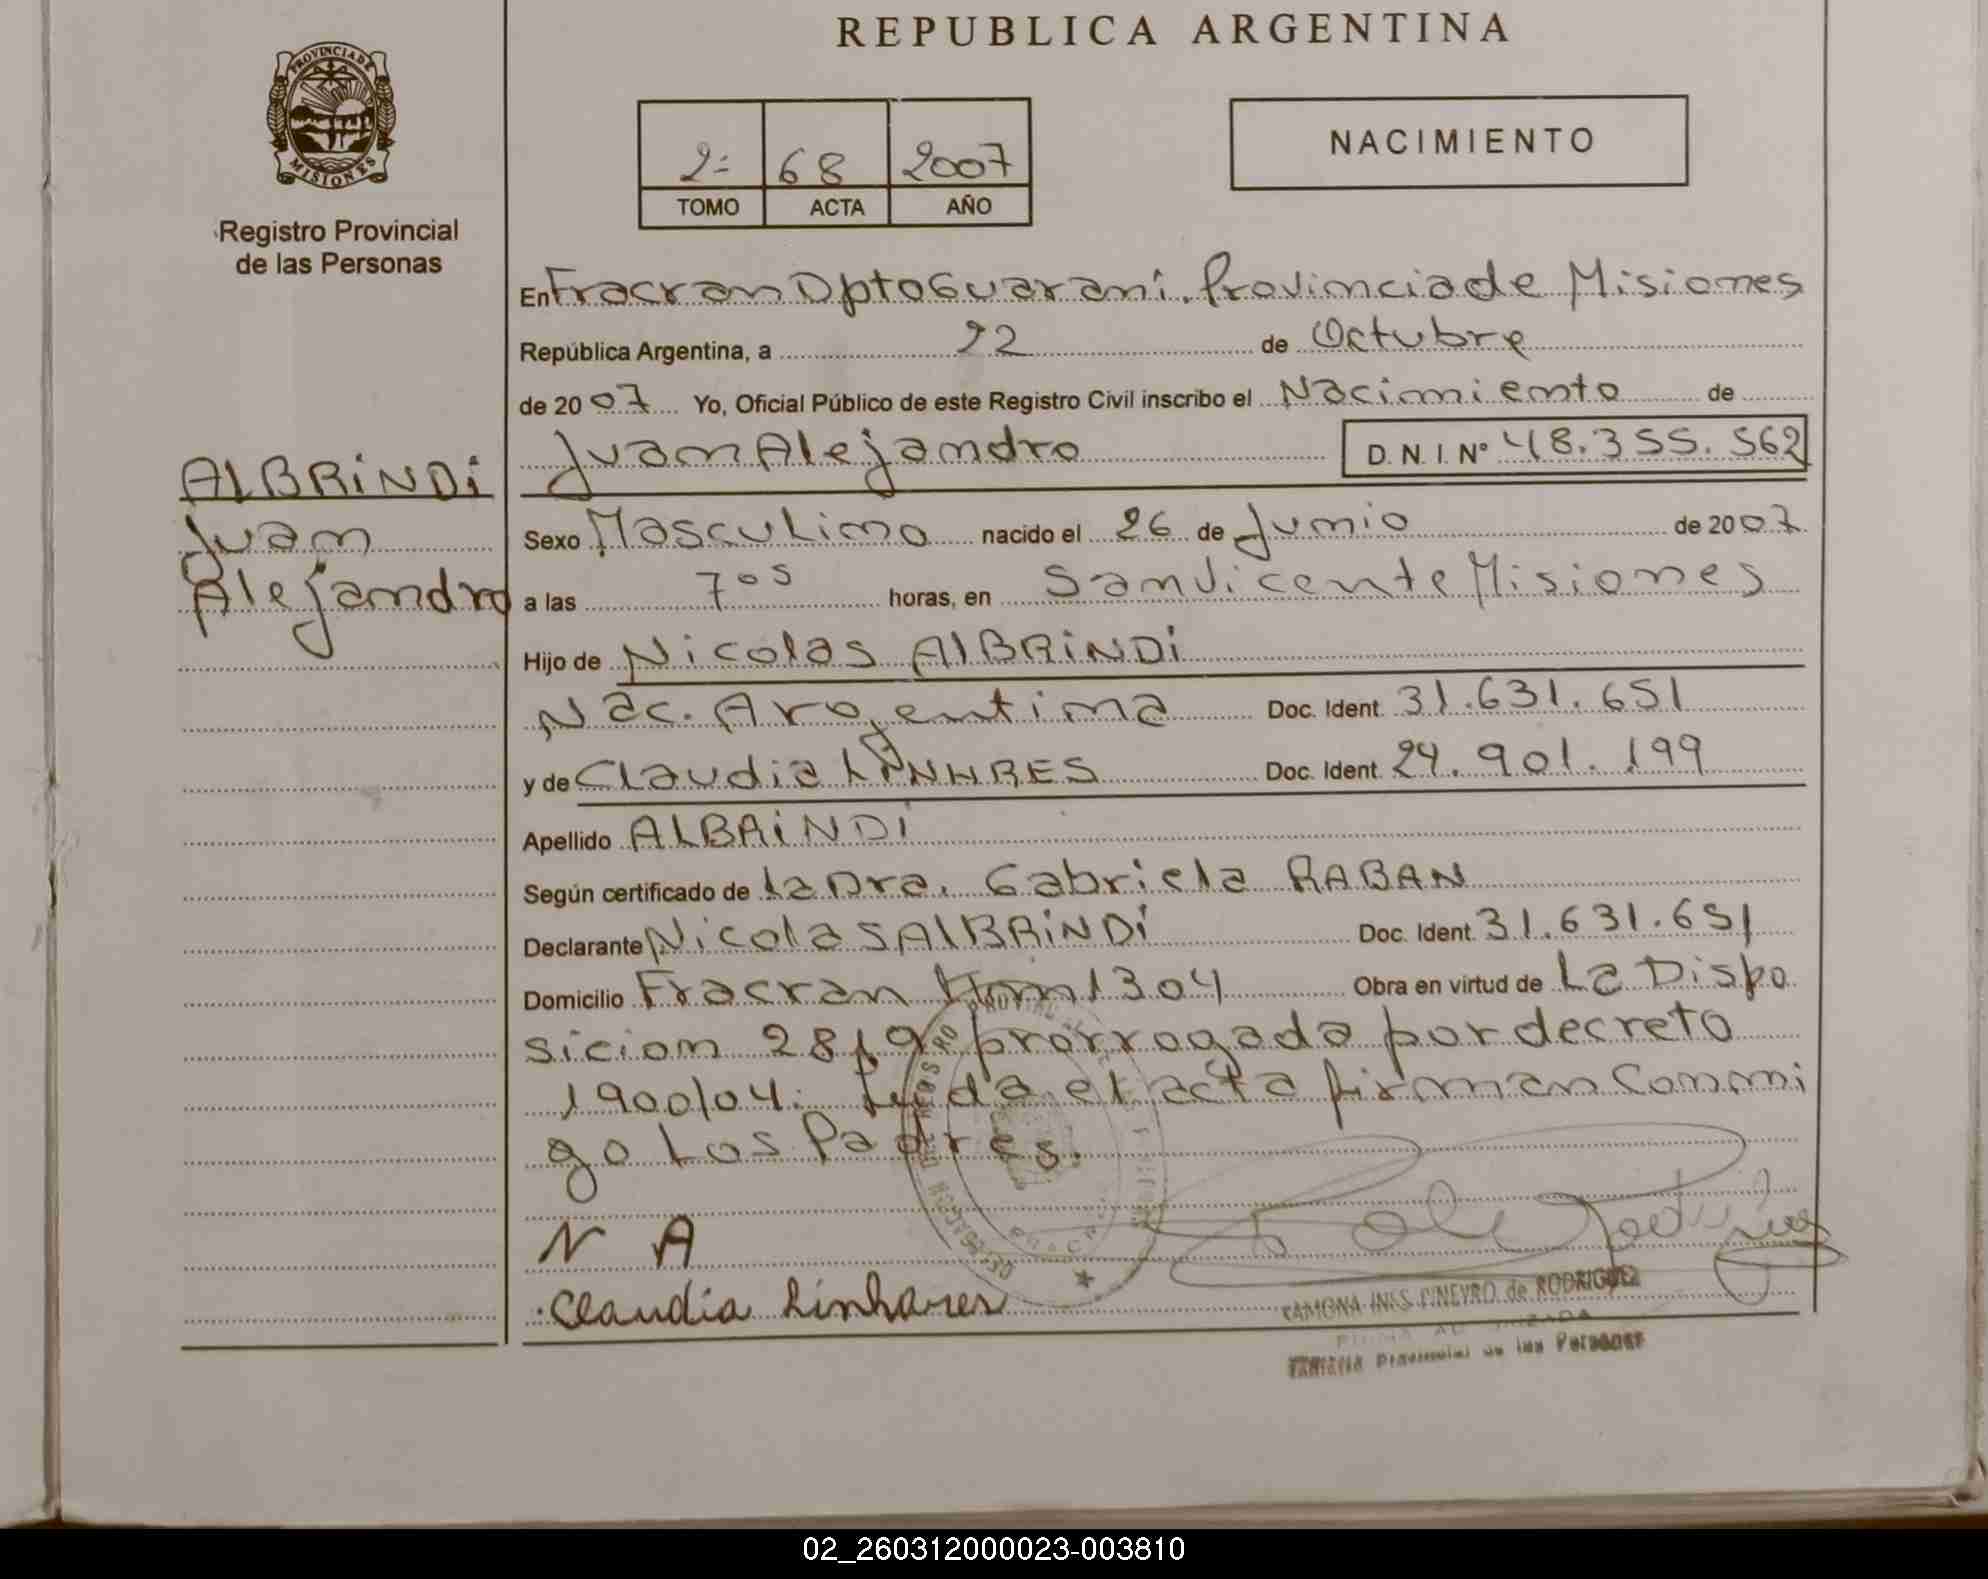 REPUBLICA ARGENTINA
PROVINCIA DE
MISIONES
Registro Provincial
de las Personas
2= 68 2007
TOMO ACTA AÑO
NACIMIENTO
En Fracran Dpto Guarani. Provincia de Misiones
República Argentina, a 22 de Octubre
de 2007 Yo, Oficial Público de este Registro Civil inscribo el Nacimiento de
Juan Alejandro D.N.I. Nº 48.355.562
ALBRiNDi
Juan
Alejandro
Sexo Masculino nacido el 26 de Junio de 2007
a las 7 05 horas, en San Vicente Misiones
Hijo de Nicolas AlBRiNDi
Nac. Argentina Doc. Ident. 31.631.651
y de Claudia LiNHRES Doc. Ident. 24.901.199
Apellido ALBRiNDi
Según certificado de La Dra. Gabriela RABAN
Declarante Nicolas AlBRiNDi Doc. Ident. 31.631.651
Domicilio Fracran Km 1304 Obra en virtud de La Dispo
sicion 2819 prorrogada por decreto
1900/04. Leida el acta firman Conmi
go Los Padres.
N A
Claudia Linhares
RAMONA INES PINEYRO de RODRIGUEZ
Provincial de las Personas
02_260312000023-003810